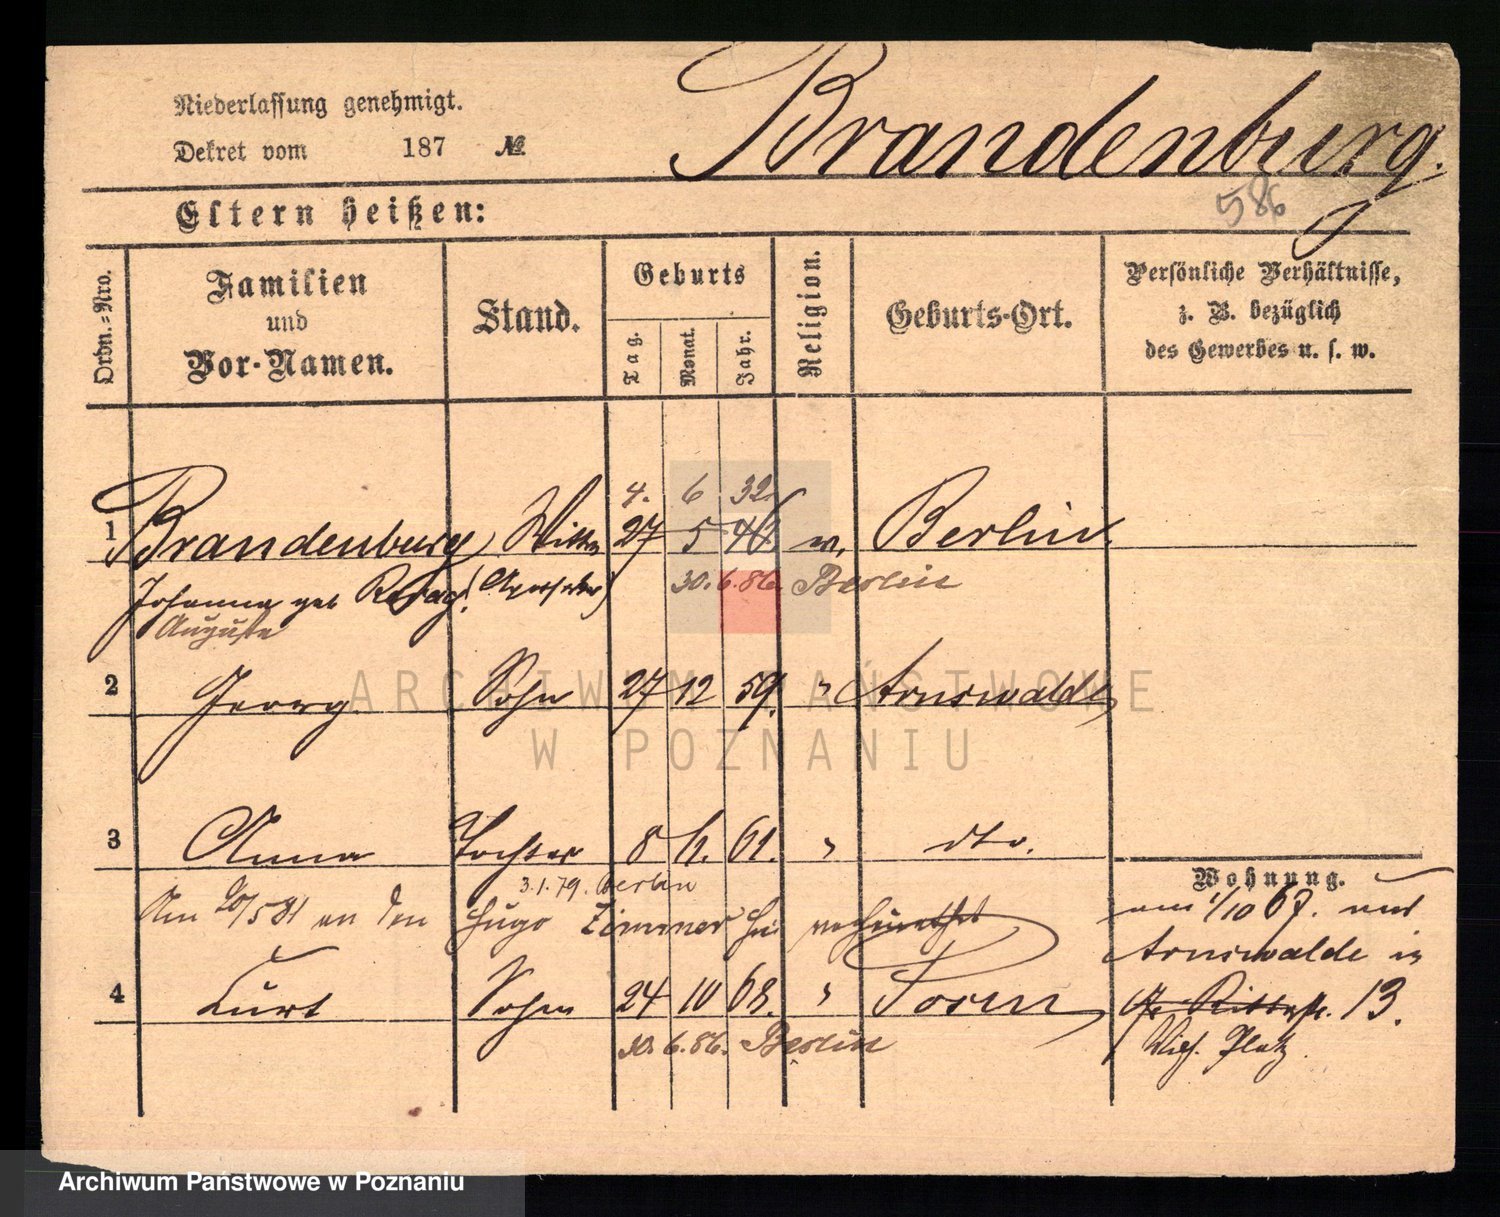 Niederlassung genehmigt.
Dekret vom 187 №
Brandenburg.
586
Eltern heißen:
Ordn.-Nro.
Familien
und
Vor-Namen.
Stand.
Geburts
Tag.
Monat.
Jahr.
Religion.
Geburts-Ort.
Persönliche Verhältnisse,
z. B. bezüglich
des Gewerbes u. s. w.
4. 6 32
1 Brandenburg Wittw 27 5 Berlin.
Johanna geb
30. 6. 86. Berlin
Auguste
2 Georg Sohn 27 12 59. " Arnswalde
3 Anna Tochter 8 61. " dto.
3.1.79. Berlin
Am 20/5 81 an den Hugo Zimmer verheirathet
4 Kurt Sohn 24 10 68. " Posen
30. 6. 86. Berlin
Wohnung.
am 1/10 67. aus
Arnswalde in
Gr. Ritterstr. 13.
Wilh. Platz.
ARCHIWUM PAŃSTWOWE
W POZNANIU
Archiwum Państwowe w Poznaniu